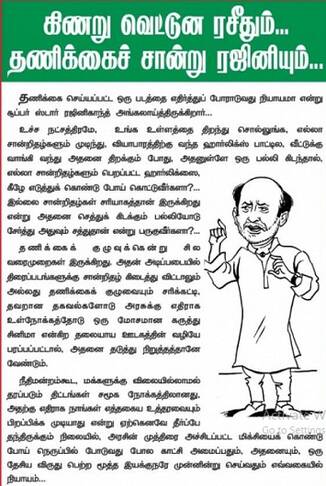 கிணறு வெட்டுன ரசீதும்...
தணிக்கைச் சான்று ரஜினியும்...
தணிக்கை செய்யப்பட்ட ஒரு படத்தை எதிர்த்துப் போராடுவது நியாயமா என்று
சூப்பர் ஸ்டார் ரஜினிகாந்த் அங்கலாய்த்திருக்கிறார்...
உச்ச நட்சத்திரமே, உங்க உள்ளத்தை திறந்து சொல்லுங்க, எல்லா
சான்றிதள்களும் முடிந்து, வியாபாரத்திற்கு வந்த ஹார்லிக்ஸ் பாட்டிலை, வீட்டுக்கு
வாங்கி வந்து அதனை திறக்கும் போது, அதனுள்ளே ஒரு பல்லி கிடந்தால்,
எல்லா சான்றிதழ்களும் பெறப்பட்ட ஹார்லிக்ஸை,
கீழே எடுத்துக் கொண்டு போய் கொட்டுவீர்களா?...
இல்லை சான்றிதழ்கள் சரியாகத்தான் இருக்கிறது
என்று அதனை செத்துக் கிடக்கும் பல்லியோடு
சேர்த்து அதுவும் சத்துதான் என்று பருகுவீர்களா?...
தணிக்கைக் குழுவுக்கென்று சில
வரைமுறைகள் இருக்கிறது. அதன் அடிப்படையில்
திரைப்படங்களுக்கு சான்றிதழ் கிடைத்து விட்டாலும்
அல்லது தணிக்கைக் குழுவையும் சரிக்கட்டி,
தவறான தகவல்களோடு அரசுக்கு எதிராக
உள்நோக்கத்தோடு ஒரு மோசமான கருத்து
சினிமா என்கிற தலையாய ஊடகத்தின் வழியே
பரப்பப்பட்டால், அதனை தடுத்து நிறுத்தத்தானே
வேண்டும்.
நீதிமன்றம்கூட, மக்களுக்கு விலையில்லாமல்
தரப்படும் திட்டங்கள் சமூக நோக்கத்திலானது.
அதற்கு எதிராக நாங்கள் எத்தகைய உத்தரவையும்
பிறப்பிக்க முடியாது என்று ஏற்கெனவே தீர்ப்பே
தந்திருக்கும் நிலையில், அரசின் முத்திரை அச்சிடப்பட்ட மிக்சியைக் கொண்டு
போய் நெருப்பில் போடுவது போல காட்சி அமைப்பதும், அதனையும், ஒரு
தேசிய விருது பெற்ற மூத்த இயக்குநரே முன்னின்று செய்வதும் எவ்வகையில்
நியாயம்...